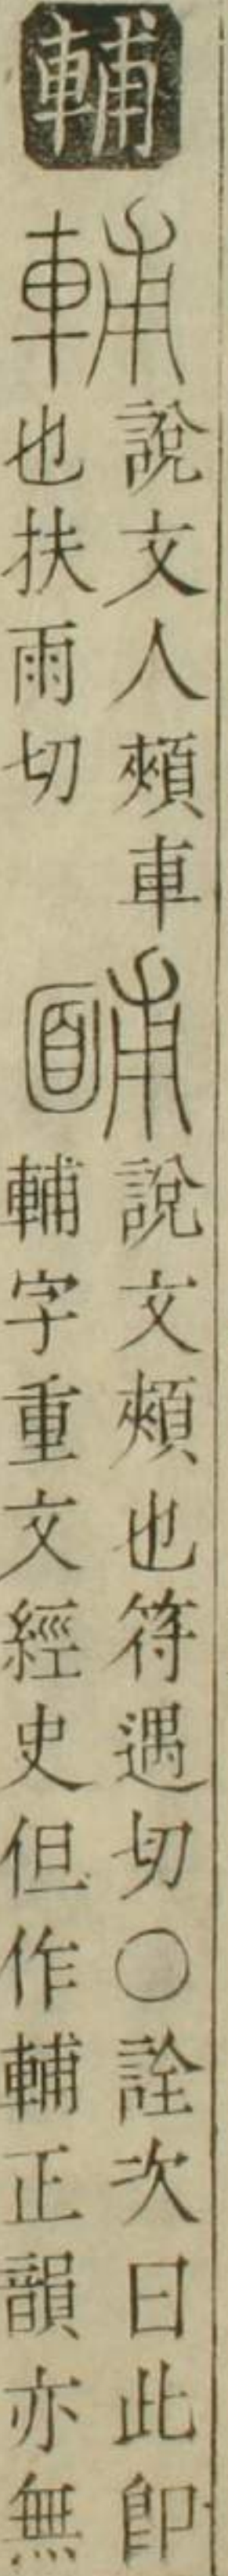 輔
輔說文人頰車
也扶雨切
䩉說文頰也符遇切○詮次曰此卽
輔字重文經史但作輔正韻亦無